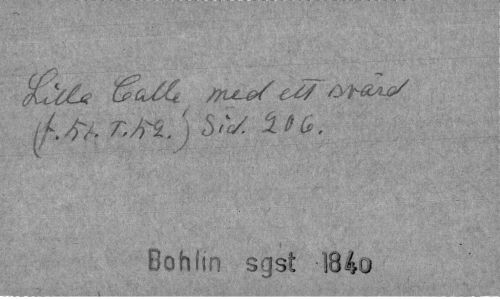 Lilla Calle med ett svärd
(f. 51. T. 52.) Sid. 206.
Bohlin sgst 1840